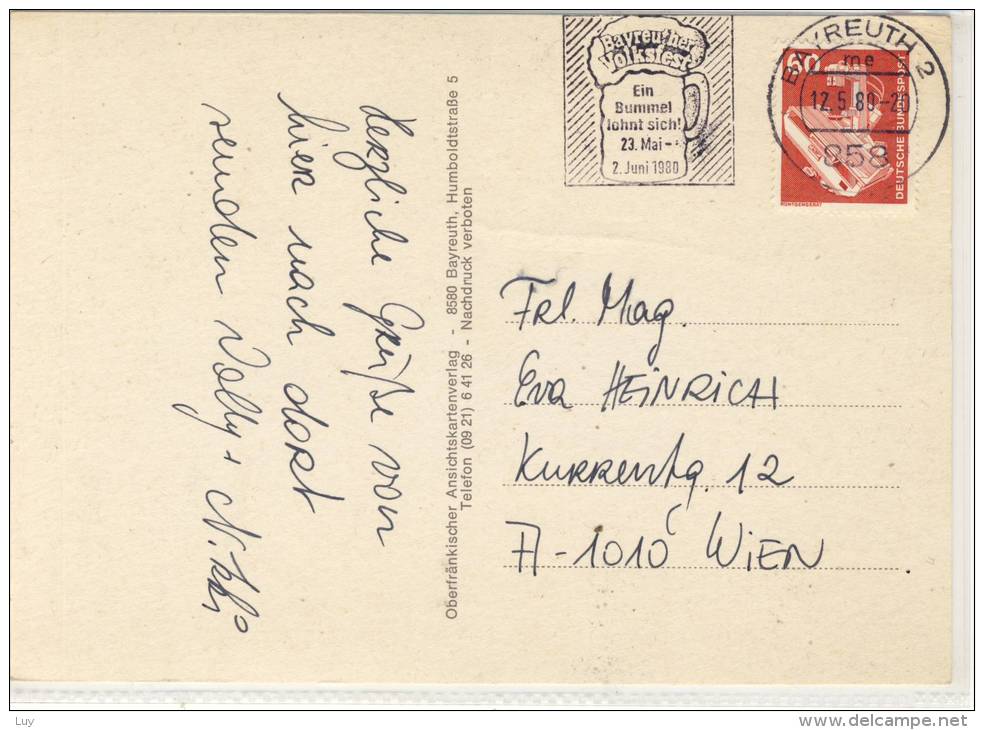 Herzliche Grüße von
hier nach dort
senden Volly + N.
Oberfränkischer Ansichtskartenverlag - 8580 Bayreuth, Humboldtstraße 5
Telefon (09 21) 6 41 26 - Nachdruck verboten
Bayreuther
Volksfest
Ein
Bummel
lohnt sich!
23. Mai -
2. Juni 1980
BAYREUTH 2
me
12.5.80-20
858
60
DEUTSCHE BUNDESPOST
RÖNTGENGERÄT
Frl. Mag.
Eva HEiNRiCH
Kurrentg. 12
A-1010 WiEN
Luy
www.delcampe.net